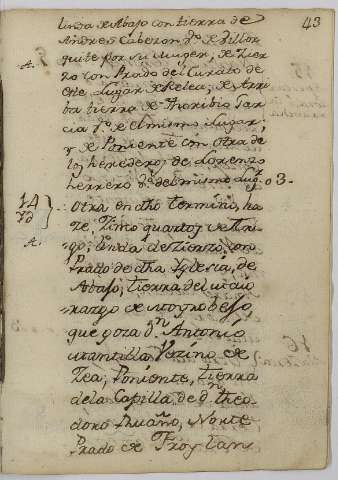 43
linda de Abajo con tierra de
Andres Caberon Vº. de Villor
quite por su Muger, de Zier
A.
zo con Prado del Curato de
este Lugar de Relea, de Arri
ba tierra de Thoribio Gar
cia Vº. de el mismo Lugar,
y de Poniente con otra de
los herederos de Lorenzo
herrero Vº. del mismo Lugr. 03.
14
Otra en dho termino, ha
ze Zinco quartos de tri
A.
go, linda de Zierzo con
Prado de dha Yglesia, de
Abajo, tierra del maio
razgo de
que goza dn. Antonio
Mantilla Vezino de
Zea, Poniente, tierra
de la Capilla de dn. Theo
doro Ruaño, Norte
Prado de Froylan